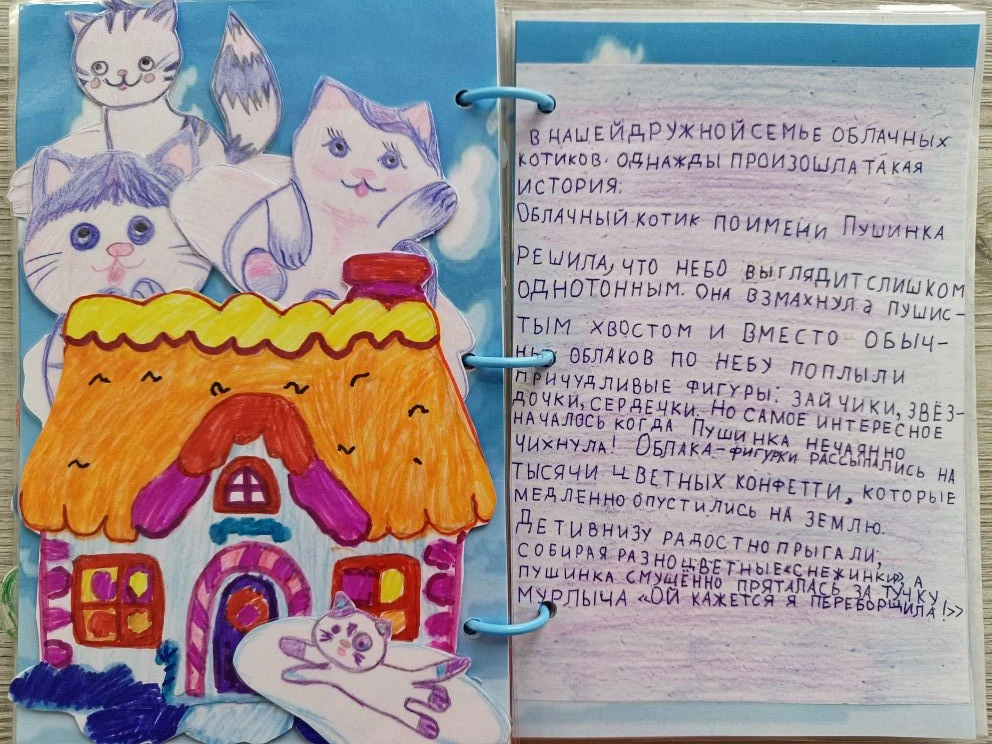 В НАШЕЙ ДРУЖНОЙ СЕМЬЕ ОБЛАЧНЫХ
КОТИКОВ. ОДНАЖДЫ ПРОИЗОШЛА ТАКАЯ
ИСТОРИЯ:
ОБЛАЧНЫЙ КОТИК ПО ИМЕНИ ПУШИНКА
РЕШИЛА, ЧТО НЕБО ВЫГЛЯДИТ СЛИШКОМ
ОДНОТОННЫМ. ОНА ВЗМАХНУЛА ПУШИС-
ТЫМ ХВОСТОМ И ВМЕСТО ОБЫЧ-
ОБЛАКОВ ПО НЕБУ ПОПЛЫЛИ
ПРИЧУДЛИВЫЕ ФИГУРЫ: ЗАЙЧИКИ, ЗВЁЗ-
ДОЧКИ, СЕРДЕЧКИ. НО САМОЕ ИНТЕРЕСНОЕ
НАЧАЛОСЬ КОГДА ПУШИНКА НЕЧАЯННО
ЧИХНУЛА! ОБЛАКА-ФИГУРКИ РАССЫПАЛИСЬ НА
ТЫСЯЧИ ЦВЕТНЫХ КОНФЕТТИ, КОТОРЫЕ
МЕДЛЕННО ОПУСТИЛИСЬ НА ЗЕМЛЮ.
ДЕТИ ВНИЗУ РАДОСТНО ПРЫГАЛИ,
СОБИРАЯ РАЗНОЦВЕТНЫЕ «СНЕЖИНКИ», А
ПУШИНКА СМУЩЁННО ПРЯТАЛАСЬ ЗА ТУЧКУ
МУРЛЫЧА «ОЙ КАЖЕТСЯ Я ПЕРЕБОРЩИЛА!»